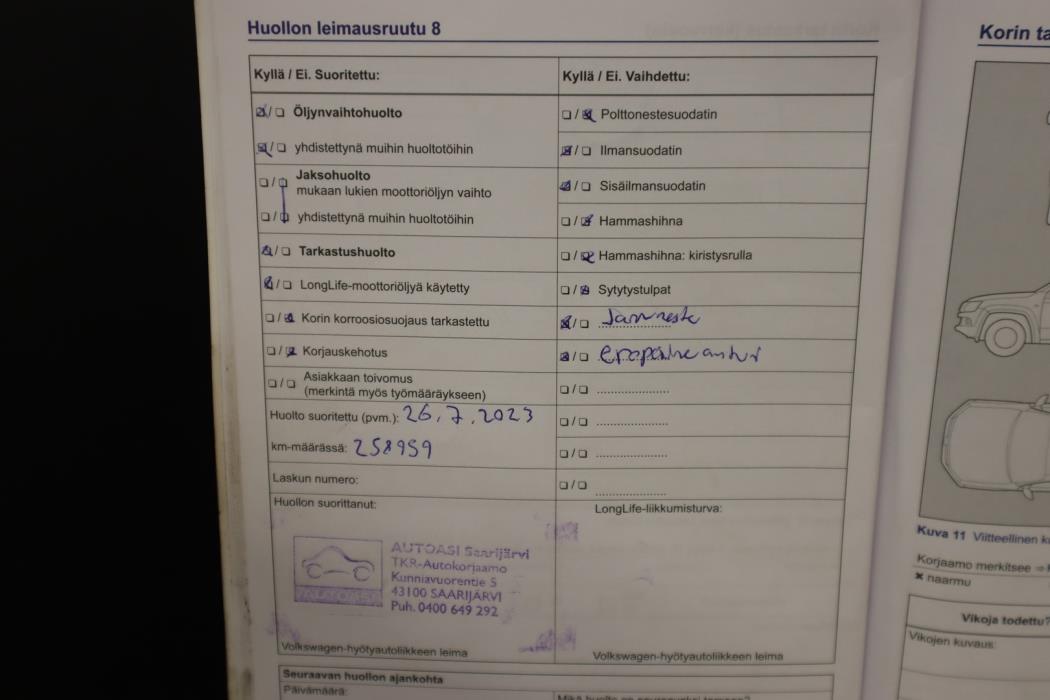 Huollon leimausruutu 8
Kyllä / Ei. Suoritettu:
Öljynvaihtohuolto
yhdistettynä muihin huoltotöihin
Jaksohuolto
mukaan lukien moottoriöljyn vaihto
yhdistettynä muihin huoltotöihin
Tarkastushuolto
LongLife-moottoriöljyä käytetty
Korin korroosiosuojaus tarkastettu
Korjauskehotus
Asiakkaan toivomus
(merkintä myös työmääräykseen)
Huolto suoritettu (pvm.): 26.7.2023
km-määrässä: 258959
Laskun numero:
Huollon suorittanut:
AUTOASI Saarijärvi
TKR-Autokorjaamo
Kunniavuorentie 5
43100 SAARIJÄRVI
Puh. 0400 649 292
Volkswagen-hyötyautoliikkeen leima
Kyllä / Ei. Vaihdettu:
Polttonestesuodatin
Ilmansuodatin
Sisäilmansuodatin
Hammashihna
Hammashihna: kiristysrulla
Sytytystulpat
Jarruneste
eropaine anturi
LongLife-liikkumisturva:
Volkswagen-hyötyautoliikkeen leima
Seuraavan huollon ajankohta
Päivämäärä:
Korin ta
Kuva 11 Viitteellinen k
Korjaamo merkitsee
✖ naarmu
Vikoja todettu?
Vikojen kuvaus: